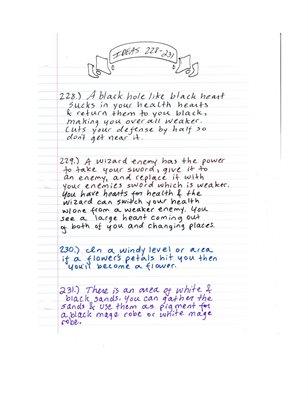 IDEAS 228-231
228.) A black hole like black heart
sucks in your health hearts
& return them to you black,
making you over all weaker.
Cuts your defense by half so
don't get near it.
229.) A wizard enemy has the power
to take your sword, give it to
an enemy, and replace it with
your enemies sword which is weaker.
You have hearts for health & the
wizard can switch your health
w/one from a weaker enemy. You
see a large heart coming out
of both of you and changing places.
230.) In a windy level or area
if a flower's petals hit you then
you'll become a flower.
231.) There is an area of white &
black sands. You can gather the
sands & use them as pigment for
a black mage robe or white mage
robe.